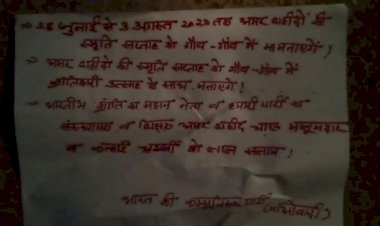 → 28 जुलाई से 3 अगस्त 2020 तक अमर शहीदों की
स्मृति सप्ताह को गाँव-गाँव में मनाएगें!
→ अमर शहीदों की स्मृति सप्ताह को गाँव-गाँव में
क्रांतिकारी उत्साह के साथ मनाएगें!
→ भारतीय क्रांति के महान नेता व हमारी पार्टी के
संस्थापक व शिक्षक अमर शहीद चारु मजूमदार
व कन्हाई चटर्जी को लाल सलाम!
भारत की कम्युनिस्ट पार्टी (माओवादी)